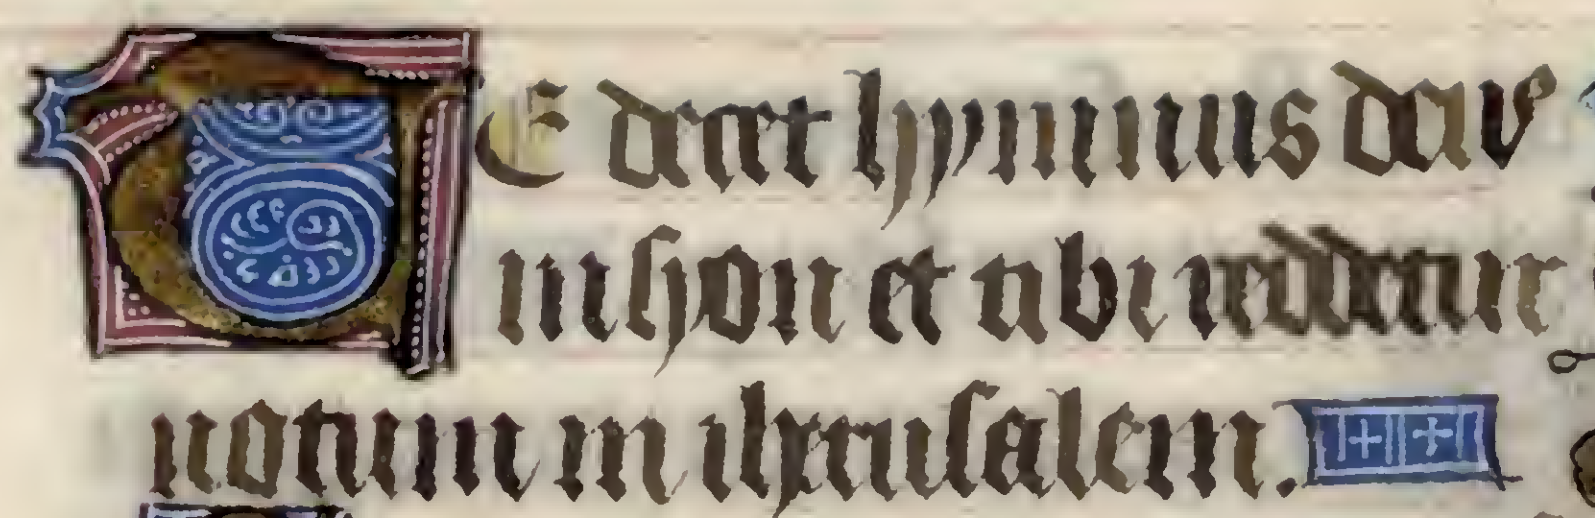 TE decet hymnus deus
in syon et tibi reddetur
uotum in iherusalem.